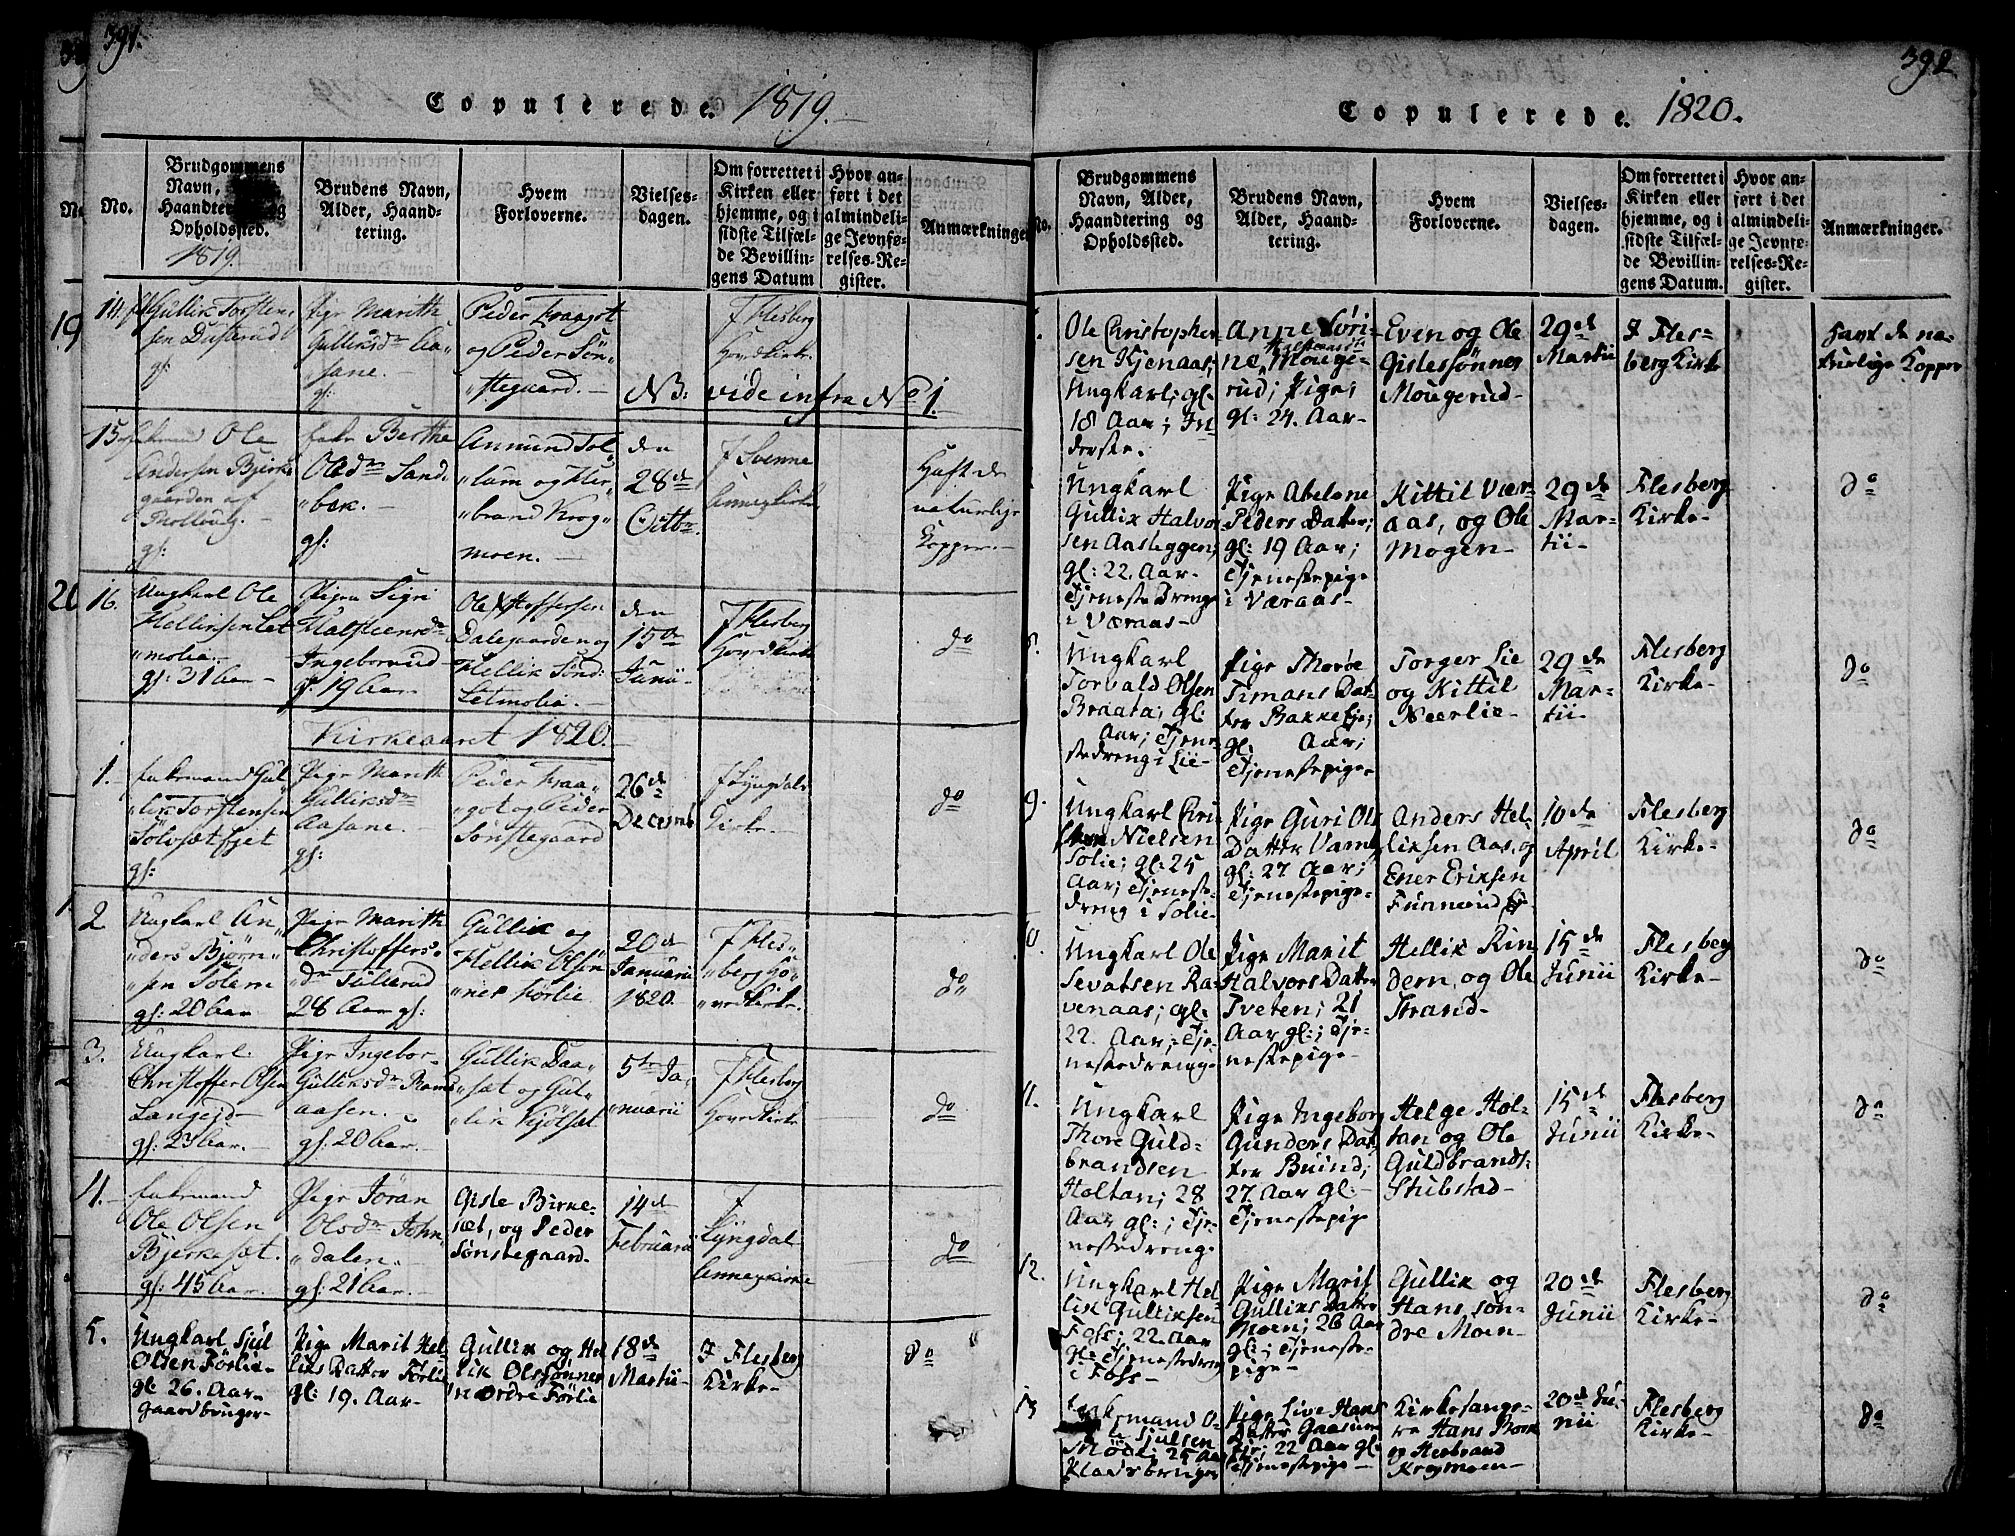 391.
Copulerede. 1819.
No.
Brudgommens
Navn,
Haandtering og
Opholdssted.
1819.
Brudens Navn,
Alder, Haand-
tering.
Hvem
Forloverne.
Vielses-
dagen.
Om forrettet i
Kirken eller
hjemme, og i
sidste Tilfæl-
de Bevillin-
gens Datum
Hvor an-
ført i det
almindeli-
ge Jevnfø-
relses-Re-
gister.
Anmærkninger
14.
Gullik Torsten-
sen
gl:
Pige Marith
Gulliksdr Aa-
sane.
gl:
Peder Kraagot
og Peder Søn-
stegaard.
I Flesberg
Hovedkirke
NB: vide infra No 1.
15.
Enkemand Ole
Andersen Bjerke
gaarden af
gl:
Enke Berthe
Olsdr Sand-
bæk.
gl:
Annund Tol-
og Her-
brand Krog-
moen.
den
28de
Octbr.
I Svenne
Annexkirke
Havt de
naturlige
Kopper.
16.
Ungkarl Ole
Helliksen Let-
molia
gl: 31 Aar
Pige Sigri
Halsteensdr
Ingebornrud
gl. 19 Aar
Ole Stoffersen
Dalegaarden og
Hellik Sønd:
Letmolia.
den
15de
Junii
I Flesberg
Hovedkirke
do
Kirkeaaret 1820.
1.
Enkemand Gul-
lik Torstensen
Sølvsætejet
gl:
Pige Marith
Gulliksdr
Aasane.
gl:
Peder Kraa-
got og Peder
Sønstegaard
26de
Decemb
I Lyngdals
Kirke.
do
2
Ungkarl An-
ders Bjørn-
sen Tolem
gl: 20 Aar
Pige Marith
Christoffers-
dr Tullerud
28 Aar gl:
Gullik og
Hellik Olsøn-
ner Førlie
20de
Januarii
1820.
I Fles-
berg Ho-
vedkirke.
do
3.
Ungkarl
Christoffer Olsen
Langejd
gl: 23 Aar.
Pige Ingebor
Gulliksdr Rams-
aasen.
gl: 20 Aar.
Gullik Daa-
sæt og Gul-
lik Kjølsæt
5te Ja-
nuarii
I Flesberg
Hovedkirke
do
4.
Enkemand
Ole Olsen
Bjerkesæt.
gl: 45 Aar.
Pige Jøran
Olsdr John-
dalen.
gl: 21 Aar.
Gisle Birke-
sæt, og Peder
Sønstegaard.
14de
Februarii
I
Lyngdal
Annexkirke
do
5.
Ungkarl Sjul
Olsen Førlie
gl: 26. Aar
Gaardbruger
Pige Marit Hel-
liks Datter Førlie
gl: 19. Aar
Gullik og Hel
lik Olssønner
nordre Førlie
18de
Martii
I Flesberg
Kirke
do
392
Copulerede. 1820.
No.
Brudgommens
Navn, Alder,
Haandtering og
Opholdssted.
Brudens Navn,
Alder, Haand-
tering.
Hvem
Forloverne.
Vielses-
dagen.
Om forrettet i
Kirken eller
hjemme, og i
sidste Tilfæl-
de Bevillin-
gens Datum.
Hvor an-
ført i det
almindeli-
ge Jevnfø-
relses-Re-
gister.
Anmærkninger.
Ole Christopher
sen Kjenaas,
Ungkarl; gl:
18 Aar; In-
derste.
Anne Søri-
ne Halstensdr Mouge-
rud; Pige;
gl: 24. Aar
Even og Ole
Gislessønner
Mougerud
29de
Martii
I Fles-
berg Kirke
Havt de na-
turlige Kopper
Ungkarl
Gullik Halvor
sen Aasleggen;
gl: 22. Aar
Tjeneste Dreng
i Væraas
Pige Abelone
Peders Datter;
gl: 19 Aar;
Tjenestepige
i Væraas
Kittil Vær-
aas, og Ole
Mogen
29de
Mar-
tii
Flesberg
Kirke
do
8.
Ungkarl
Torvald Olsen
Braata; gl:
Aar; Tjene-
stedreng i Lie
Pige Thorøe
Timans Dat-
ter Bakke Eje;
gl: Aar;
Tjenestepige
Torger Lie
og Kittil
Neerlie
29de
Mar-
tii
Flesberg
Kirke
do
9.
Ungkarl Chri
Nielsen
Solie; gl: 25
Aar; Tjeneste-
dreng i Solie
Pige Guri Ols
Datter Vamb,
gl: 27 Aar;
Tjenestepige
Anders Hel-
liksen Aas, og
Ener Eriksen
Funnerud
10de
April
Flesberg
Kirke
do
10.
Ungkarl Ole
Sevatsen Ra-
venaas; gl:
22. Aar; Tje-
nestedreng
Pige Marit
Halvors Datter
Tveten; 21
Aar gl:; Tje-
nestepige
Hellik Rin
dern, og Ole
Strand
15de
Junii
Flesberg
Kirke
do
11.
Ungkarl
Thore Guld-
brandsen
Holtan; 28
Aar gl:; Tje-
nestedreng
Pige Ingeborg
Gunders Dat-
ter Buind;
27. Aar gl:
Tjenestepig
Helge Hol-
tan og Ole
Guldbrands:
Stubstad
15de
Junii
Flesberg
Kirke
do
12.
Ungkarl Hel-
lik Gulliksen
Foss; 22. Aar
gl: Tjenestedreng
i Foss
Pige Marit
Gulliks Datter
Moen; 26 Aar
gl:; Tjeneste-
pige
Gullik og
Hans, søn-
dre Moen
20de
Junii
Flesberg
Kirke
do
13
Enkemand O-
le Sjulsen
25 Aar
Pladsbruger
Pige Live Hans
Datter
22 Aar gl:
Tjenestepige
Kirkesange-
re Hans
og Herbrand
Krogmoen
20de Ju-
nii
Flesberg
Kirke
do